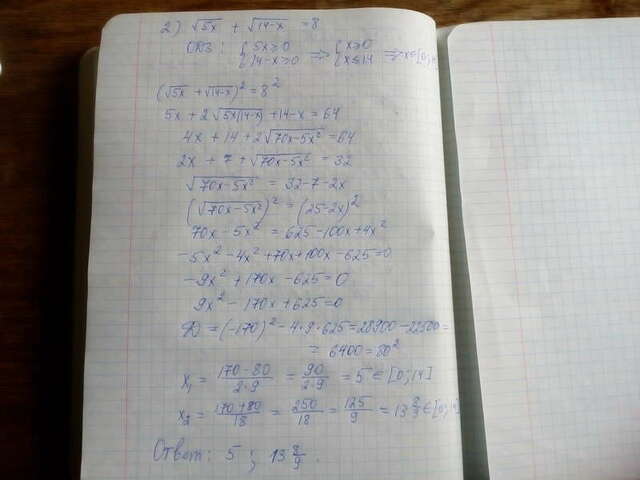 2) √5x + √14-x = 8
ОДЗ: {5x≥0 {14-x≥0 => {x≥0 {x≤14 => x∈[0;14
(√5x + √14-x)² = 8²
5x + 2√5x(14-x) + 14-x = 64
4x + 14 + 2√70x-5x² = 64
2x + 7 + √70x-5x² = 32
√70x-5x² = 32-7-2x
(√70x-5x²)² = (25-2x)²
70x - 5x² = 625 - 100x + 4x²
-5x² - 4x² + 70x + 100x - 625 = 0
-9x² + 170x - 625 = 0
9x² - 170x + 625 = 0
D = (-170)² - 4·9·625 = 28900 - 22500 =
= 6400 = 80²
x₁ = 170-80/2·9 = 90/2·9 = 5 ∈ [0;14]
x₂ = 170+80/18 = 250/18 = 125/9 = 13 8/9 ∈ [0;1
Ответ: 5 ; 13 8/9.